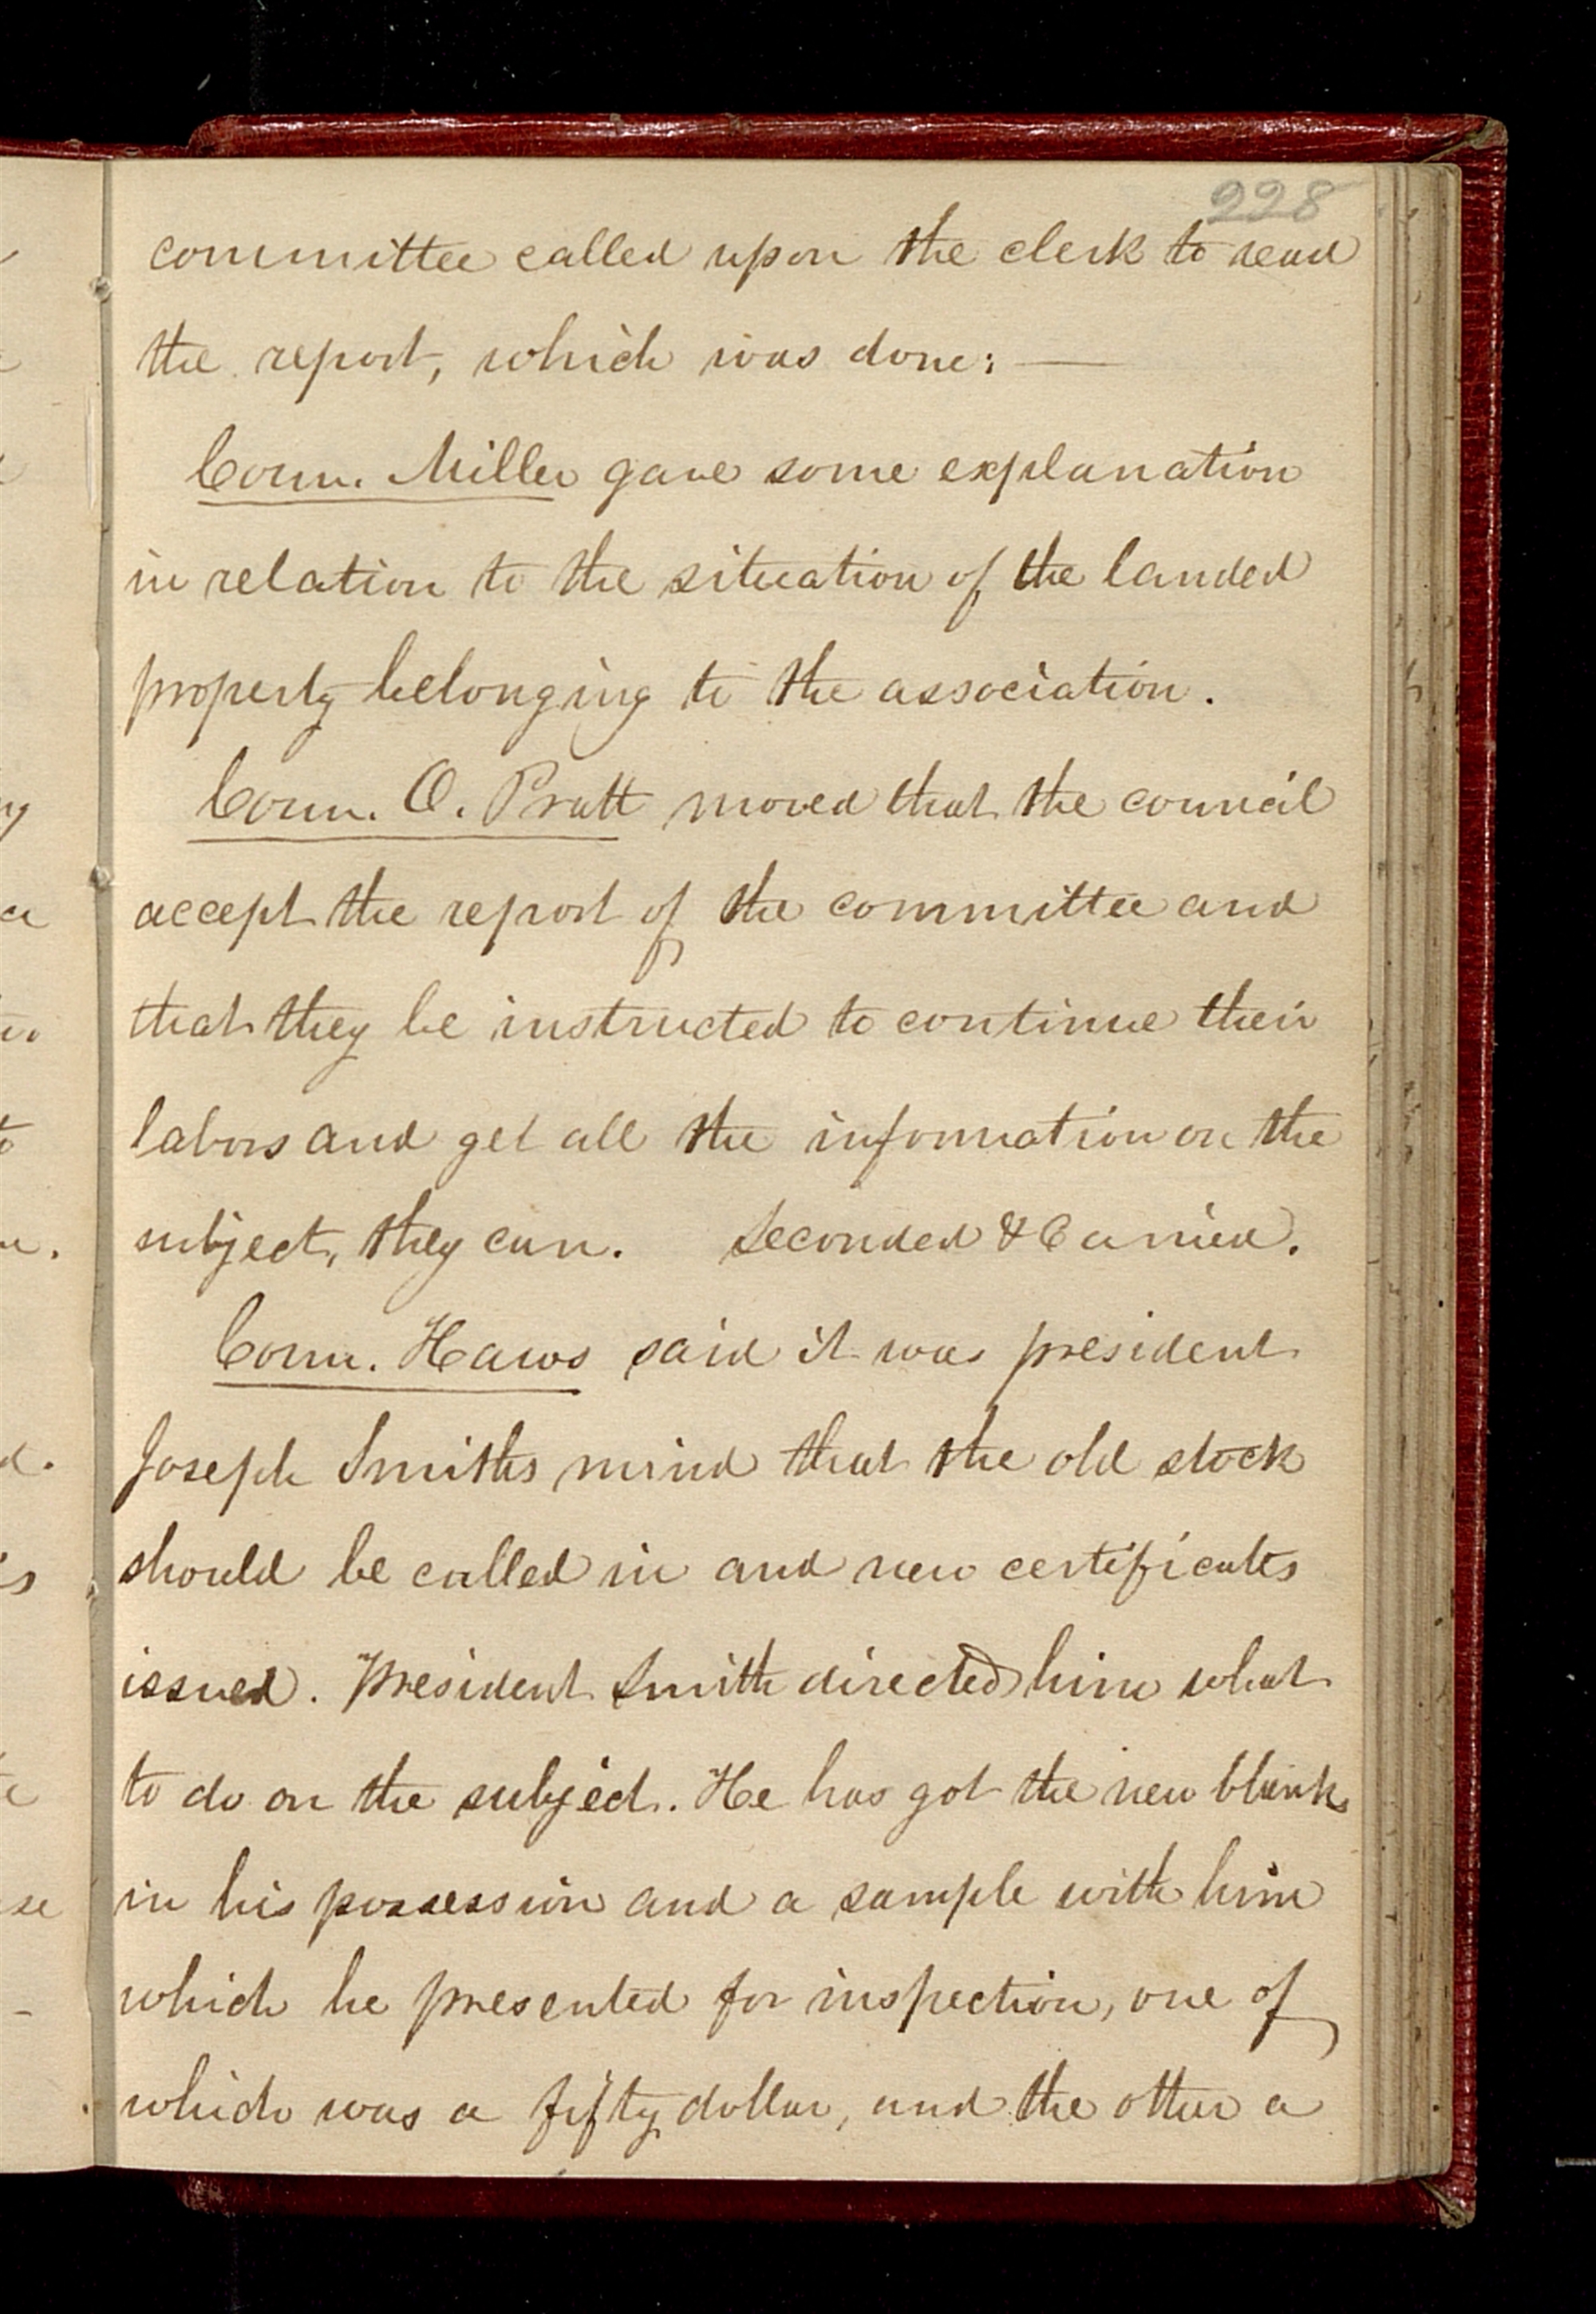 228
committee called upon the clerk to read
the report, which was done: —
Coun. Miller gave some explanation
in relation to the situation of the landed
property belonging to the association.
Coun. O. Pratt moved that the council
accept the report of the committee and
that they be instructed to continue their
labors and get all the information on the
subject, they can. Seconded & Carried.
Coun. Haws said it was president
Joseph Smiths mind that the old stock
should be called in and new certificates
issued. President Smith directed him what
to do on the subject. He has got the new blanks
in his possession and a sample with him
which he presented for inspection, one of
which was a fifty dollar, and the other a